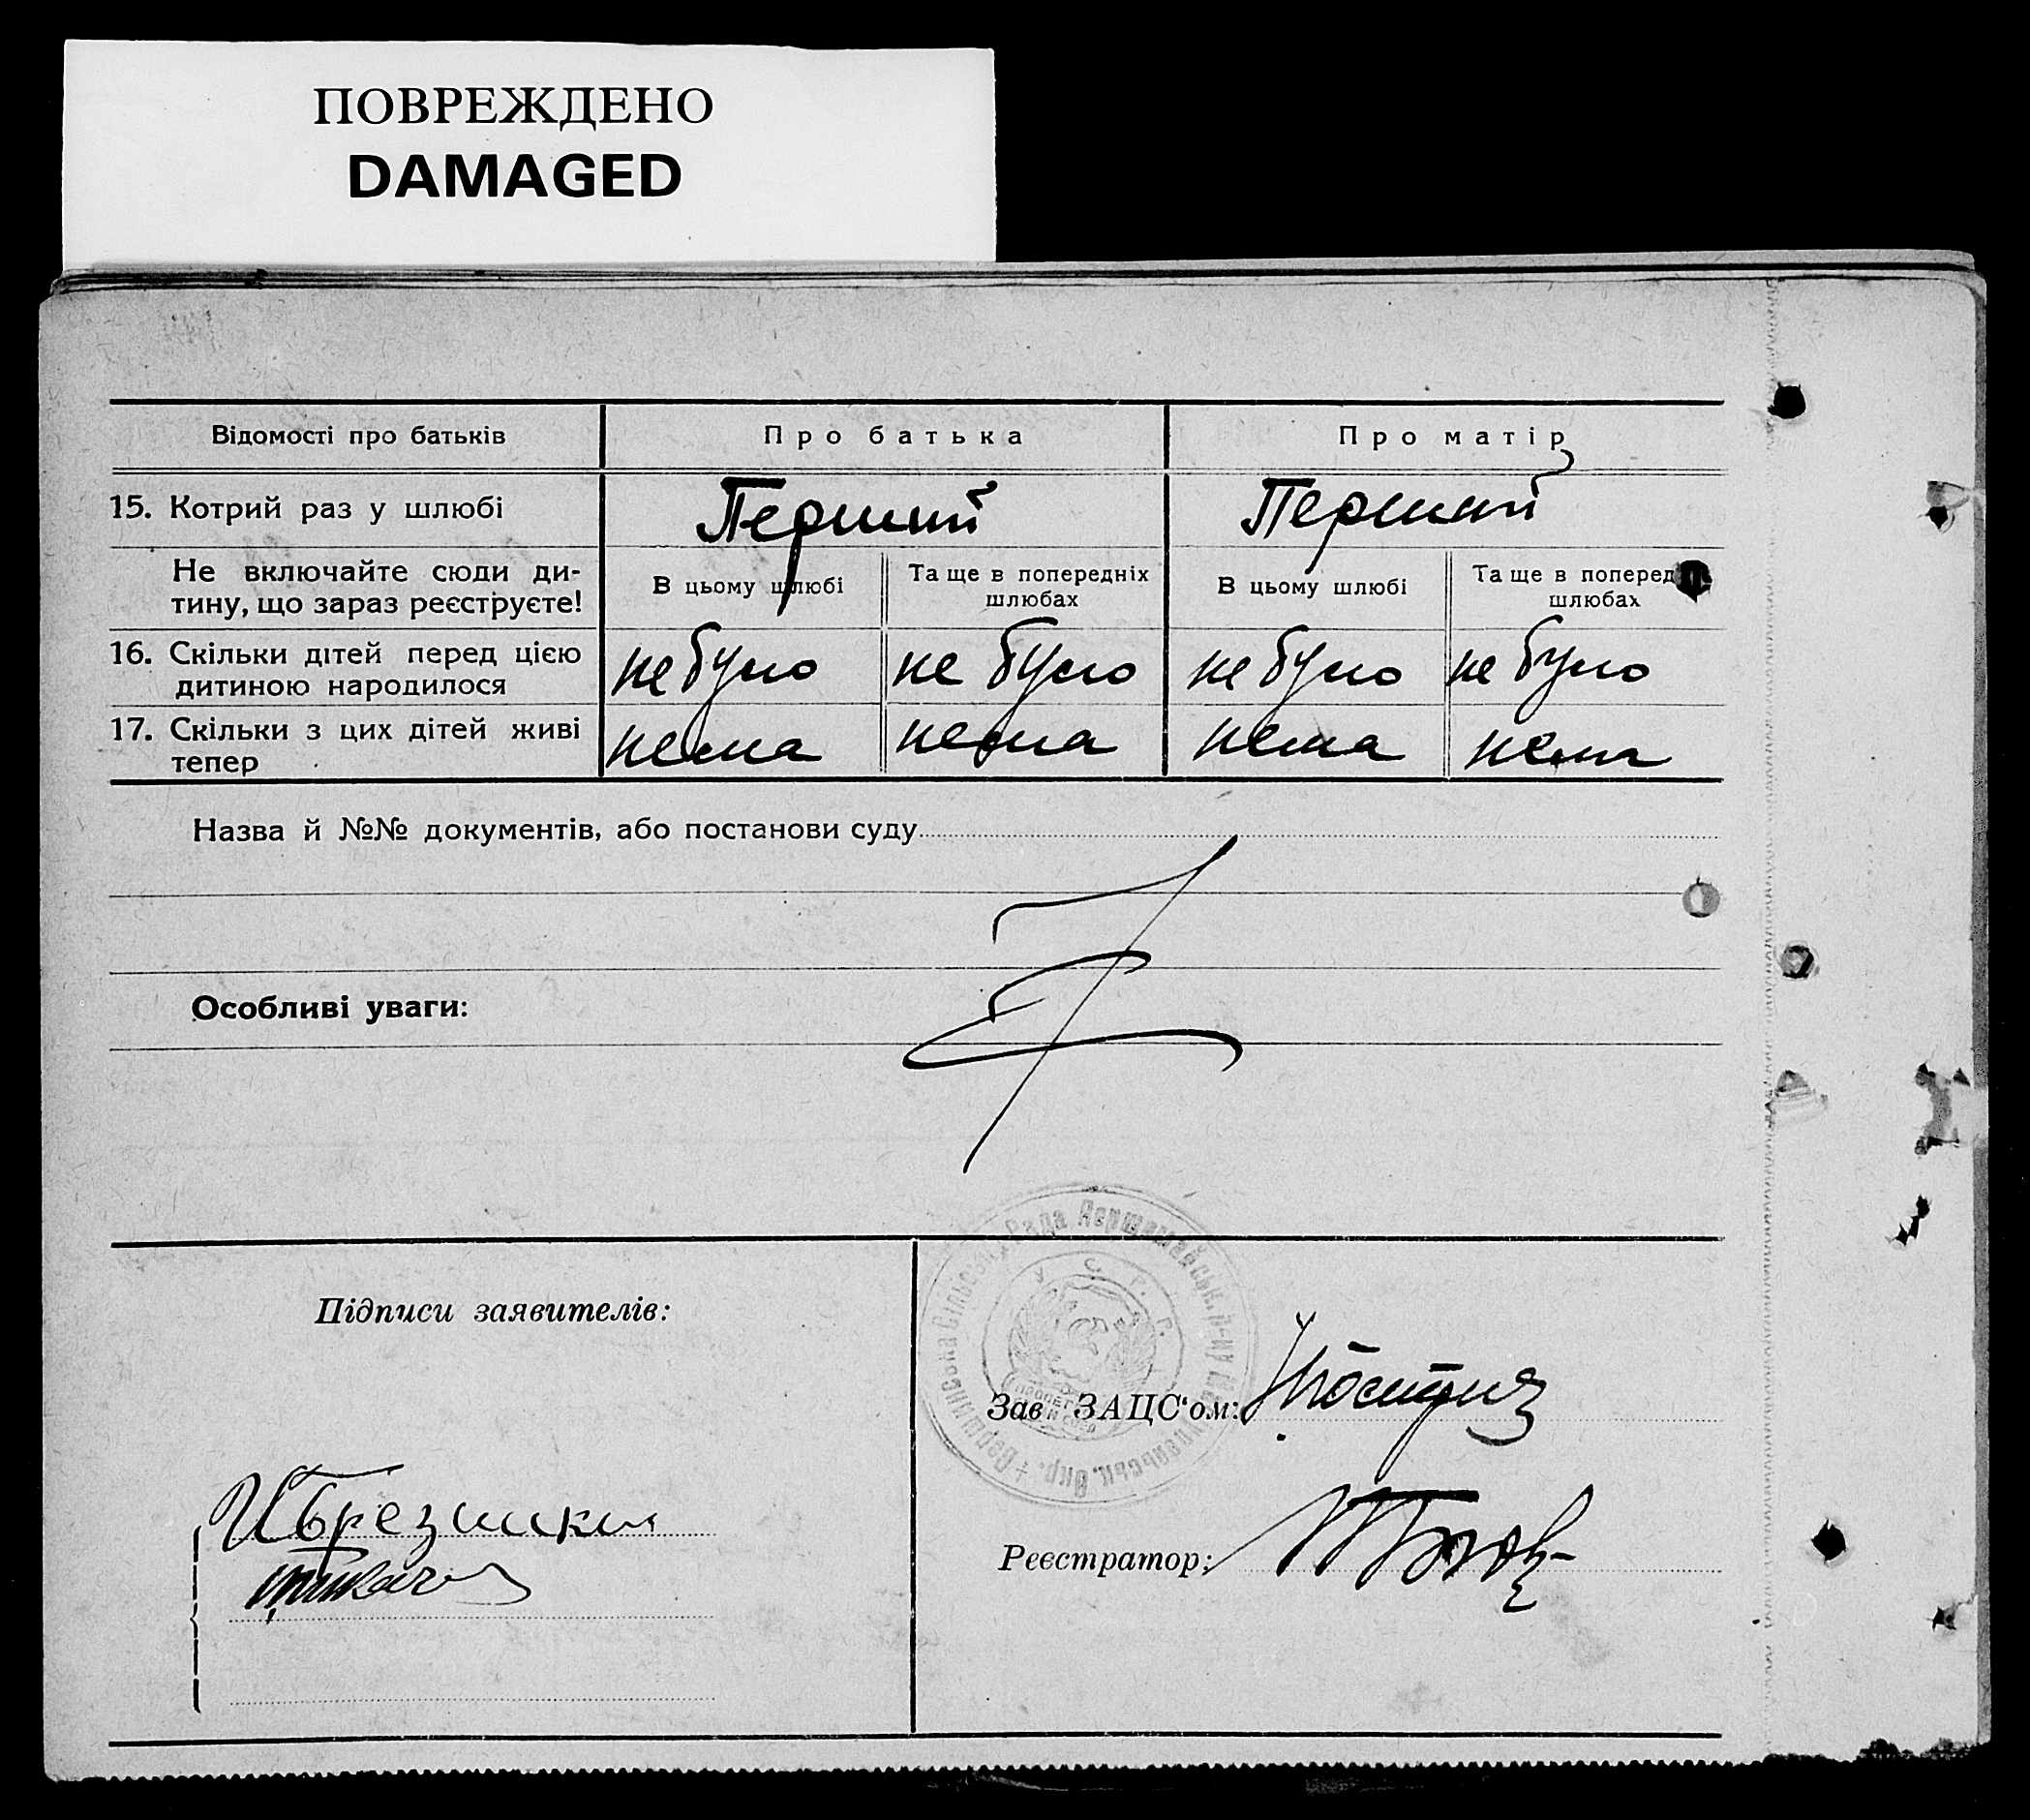 ПОВРЕЖДЕНО
DAMAGED
Відомості про батьків
Про батька
Про матір
15. Котрий раз у шлюбі
Перший
Перший
Не включайте сюди ди-
тину, що зараз реєструєте!
В цьому шлюбі
Та ще в попередніх
шлюбах
В цьому шлюбі
Та ще в поперед
шлюбах
16. Скільки дітей перед цією
дитиною народилося
не було
не було
не було
не було
17. Скільки з цих дітей живі
тепер
нема
нема
нема
нема
Назва й №№ документів, або постанови суду
Особливі уваги:
Підписи заявителів:
Сільська Рада Першамайськ. р-ну
У. С. Р. Р.
Зав. ЗАЦС'ом:
Реєстратор: